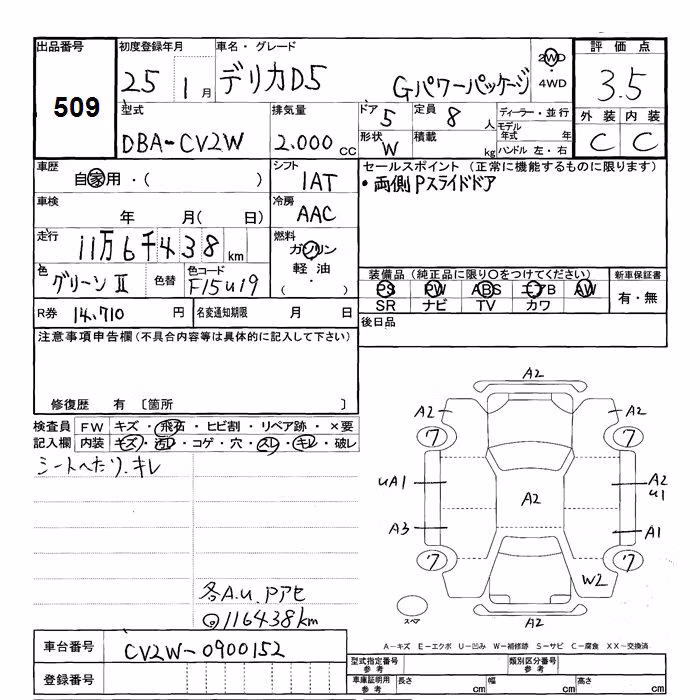 出品番号 初度登録年月 車名・グレード 評価点
509 25 1月 デリカD5 Gパワーパッケージ 2WD・4WD 3.5
型式 排気量 ドア 5 定員 8人 ディーラー・並行 外装 内装
DBA-CV2W 2.000cc 形状 W 積載 kg モデル年式 年 C C
ハンドル 左・右
車歴 シフト セールスポイント (正常に機能するものに限ります)
自家用・( ) 1AT ・両側Pスライドドア
車検 冷房
年 月( 日) AAC
走行 燃料
11万6千438km ガソリン
色 色替 色コード 軽油
グリーンⅡ F15u19 ・( )
装備品(純正品に限り○をつけてください) 新車保証書
PS PW ABS エアB AW 有・無
SR ナビ TV カワ
R券 14,710円 名変通知期限 月 日 後日品
注意事項申告欄(不具合内容等は具体的に記入して下さい)
修復歴 有 〔箇所 〕
検査員 FW キズ・飛石・ヒビ割・リペア跡・×要
記入欄 内装 キズ・汚レ・コゲ・穴・スレ・キレ・破レ
シートへたり.キレ
各A.u.Pアセ
◎116438km
A2
A2 A2
7 7
uA1 A2 A2
u1
A3 A1
7 7
W2
スペア A2
A-キズ E-エクボ U-凹み W-補修跡 S-サビ C-腐食 XX-交換済
車台番号 CV2W-0900152
型式指定番号 参考 類別区分番号 参考
登録番号 車庫証明用 参考 長さ cm 幅 cm 高さ cm